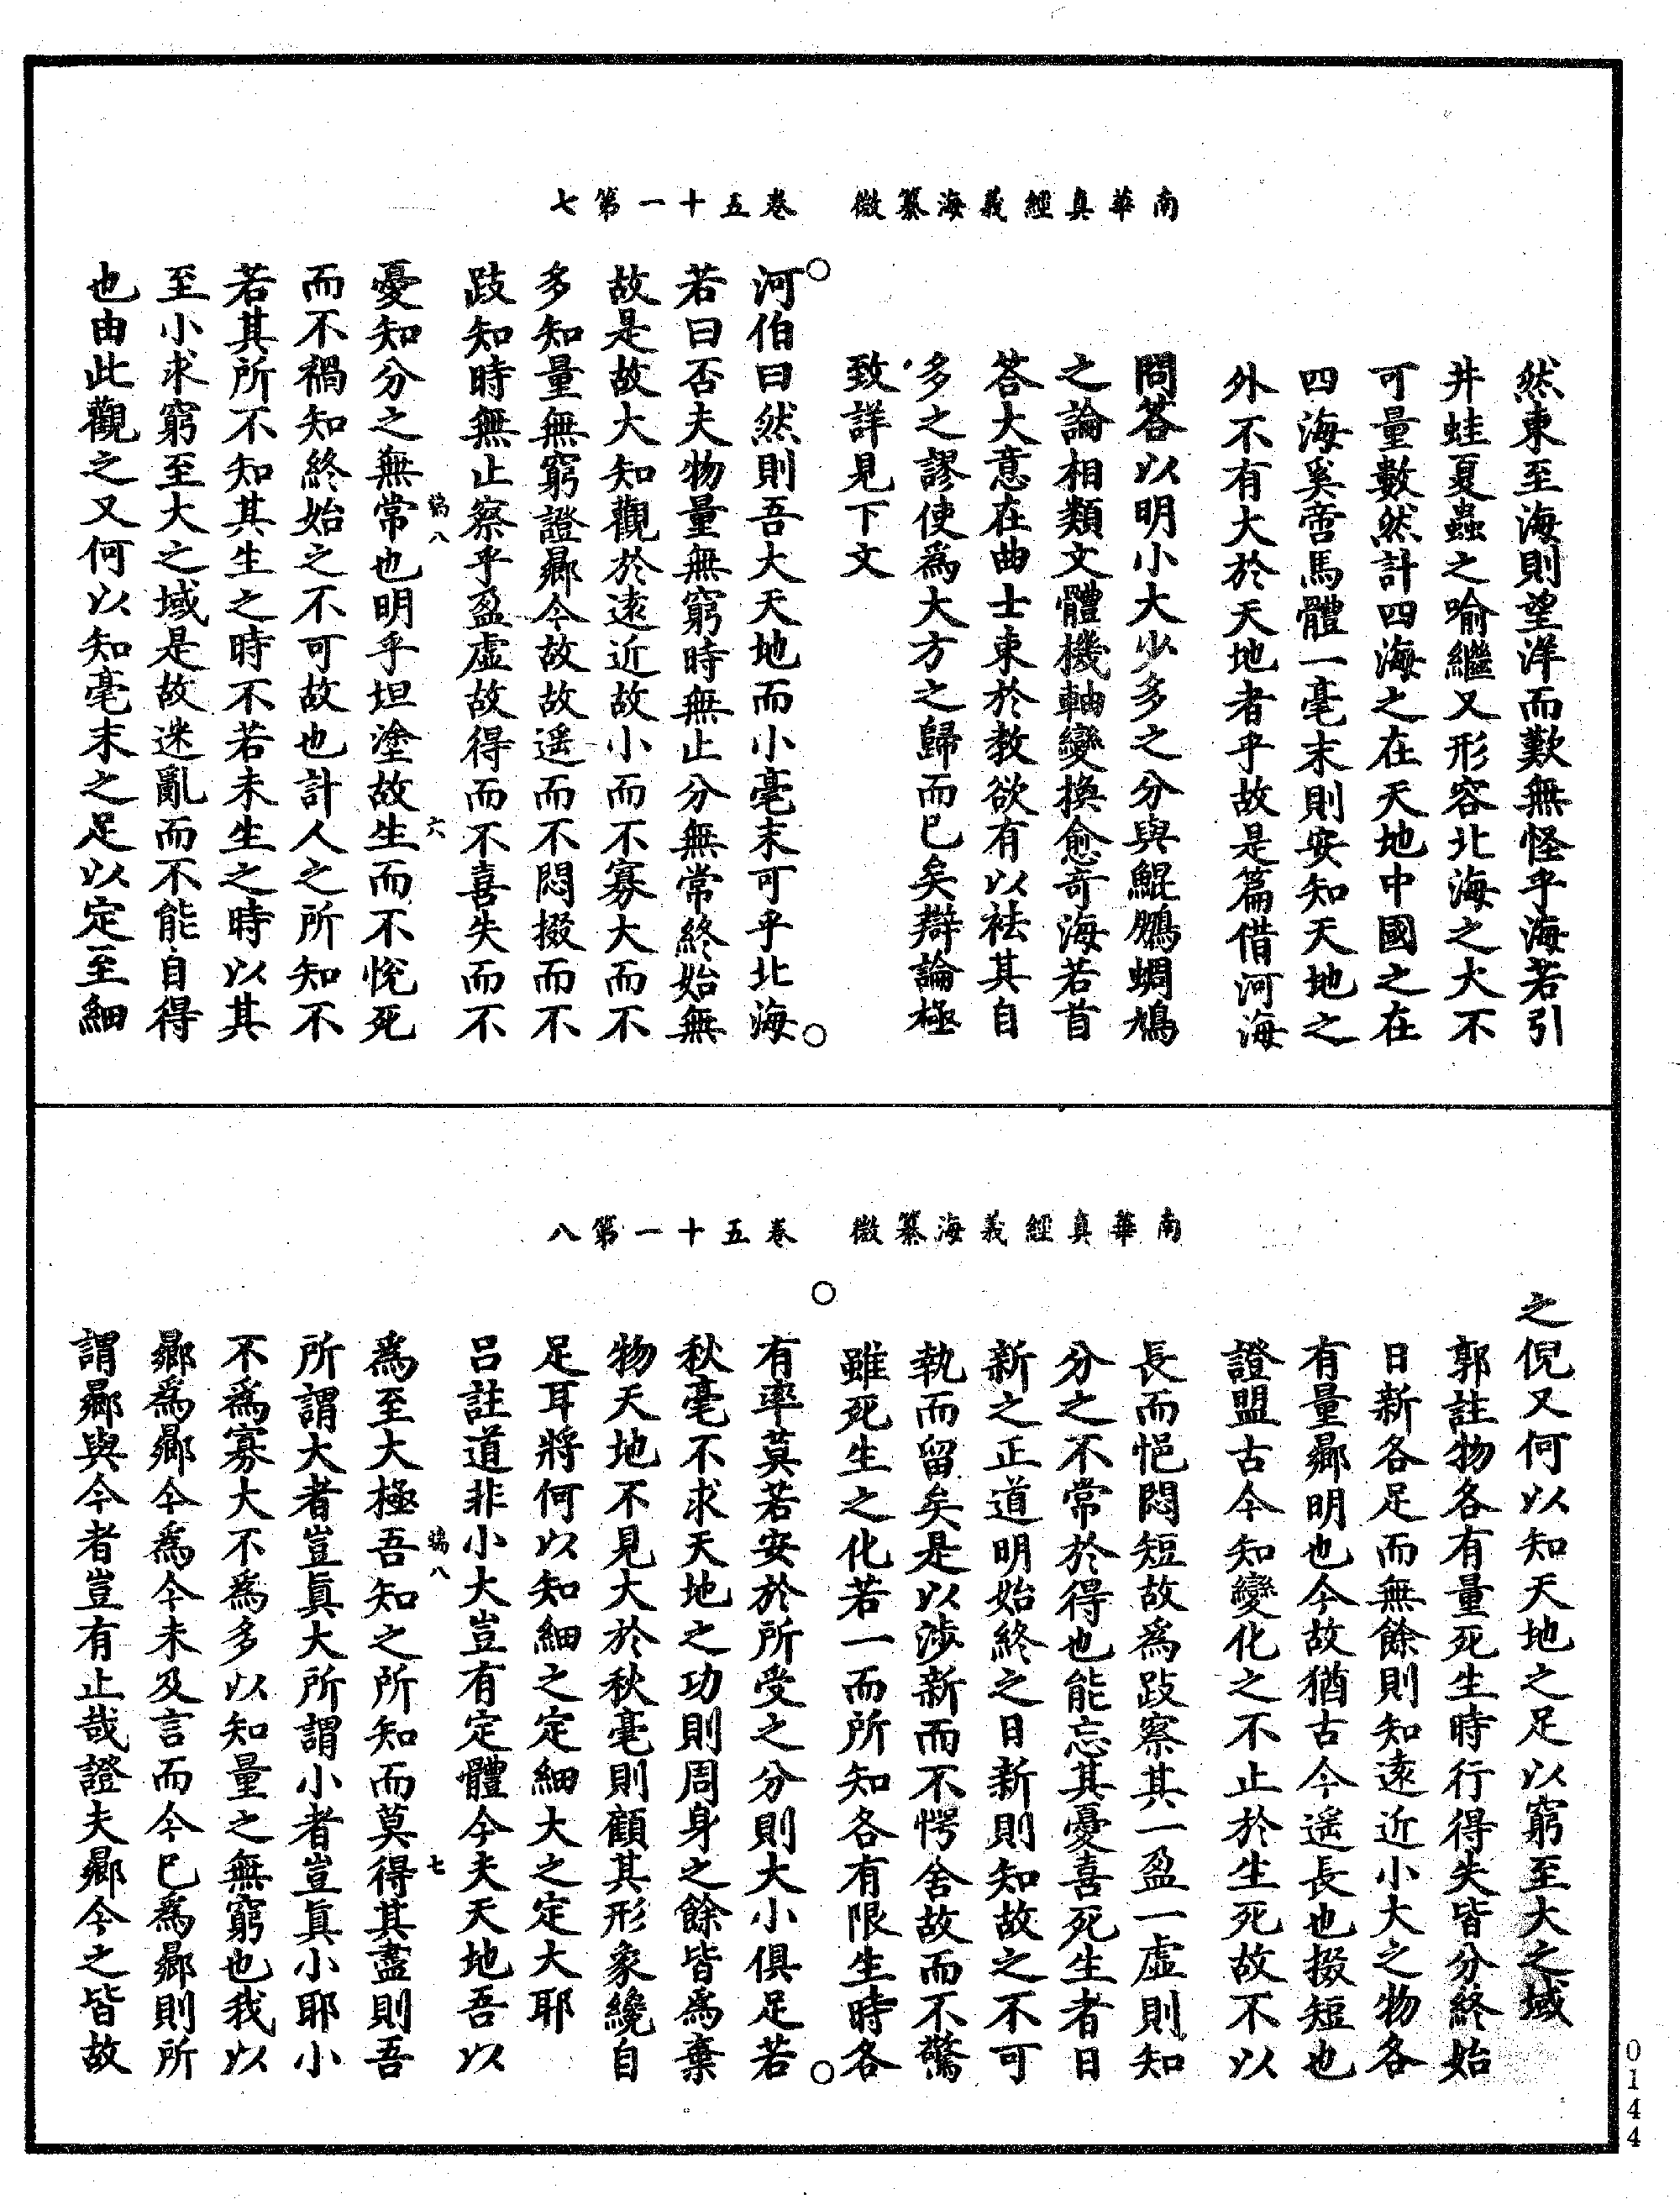 南華真經義海纂微　卷五十一第七
然東至海則望洋而歎無怪乎海若引
井蛙夏蟲之喻繼又形容北海之大不
可量數然計四海之在天地中國之在
四海奚啻馬體一毫末則安知天地之
外不有大於天地者乎故是篇借河海
問答以明小大少多之分與鯤鵬蜩鳩
之論相類文體機軸變換愈奇海若首
答大意在曲士束於教欲有以袪其自
多之謬使為大方之歸而已矣辯論極
致詳見下文
河伯曰然則吾大天地而小毫末可乎北海
若曰否夫物量無窮時無止分無常終始無
故是故大知觀於遠近故小而不寡大而不
多知量無窮證曏今故故遥而不悶掇而不
跂知時無止察乎盈虛故得而不喜失而不
憂知分之無常也明乎坦塗故生而不悅死
而不禍知終始之不可故也計人之所知不
若其所不知其生之時不若未生之時以其
至小求窮至大之域是故迷亂而不能自得
也由此觀之又何以知毫末之足以定至細
八
六
南華真經義海纂微　卷五十一第八
之倪又何以知天地之足以窮至大之域
郭註物各有量死生時行得失皆分終始
日新各足而無餘則知遠近小大之物各
有量曏明也今故猶古今遥長也掇短也
證盟古今知變化之不止於生死故不以
長而悒悶短故為跂察其一盈一虛則知
分之不常於得也能忘其憂喜死生者日
新之正道明始終之日新則知故之不可
執而留矣是以涉新而不愕舍故而不驚
雖死生之化若一而所知各有限生時各
有率莫若安於所受之分則大小俱足若
秋毫不求天地之功則周身之餘皆為棄
物天地不見大於秋毫則顧其形象纔自
足耳將何以知細之定細大之定大耶
呂註道非小大豈有定體今夫天地吾以
為至大極吾知之所知而莫得其盡則吾
所謂大者豈真大所謂小者豈真小耶小
不為寡大不為多以知量之無窮也我以
曏為曏今為今未及言而今已為曏則所
謂曏與今者豈有止哉證夫曏今之皆故
八
七
0144